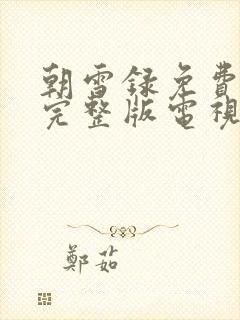 朝雪録免費
完整版電視
鄭茹